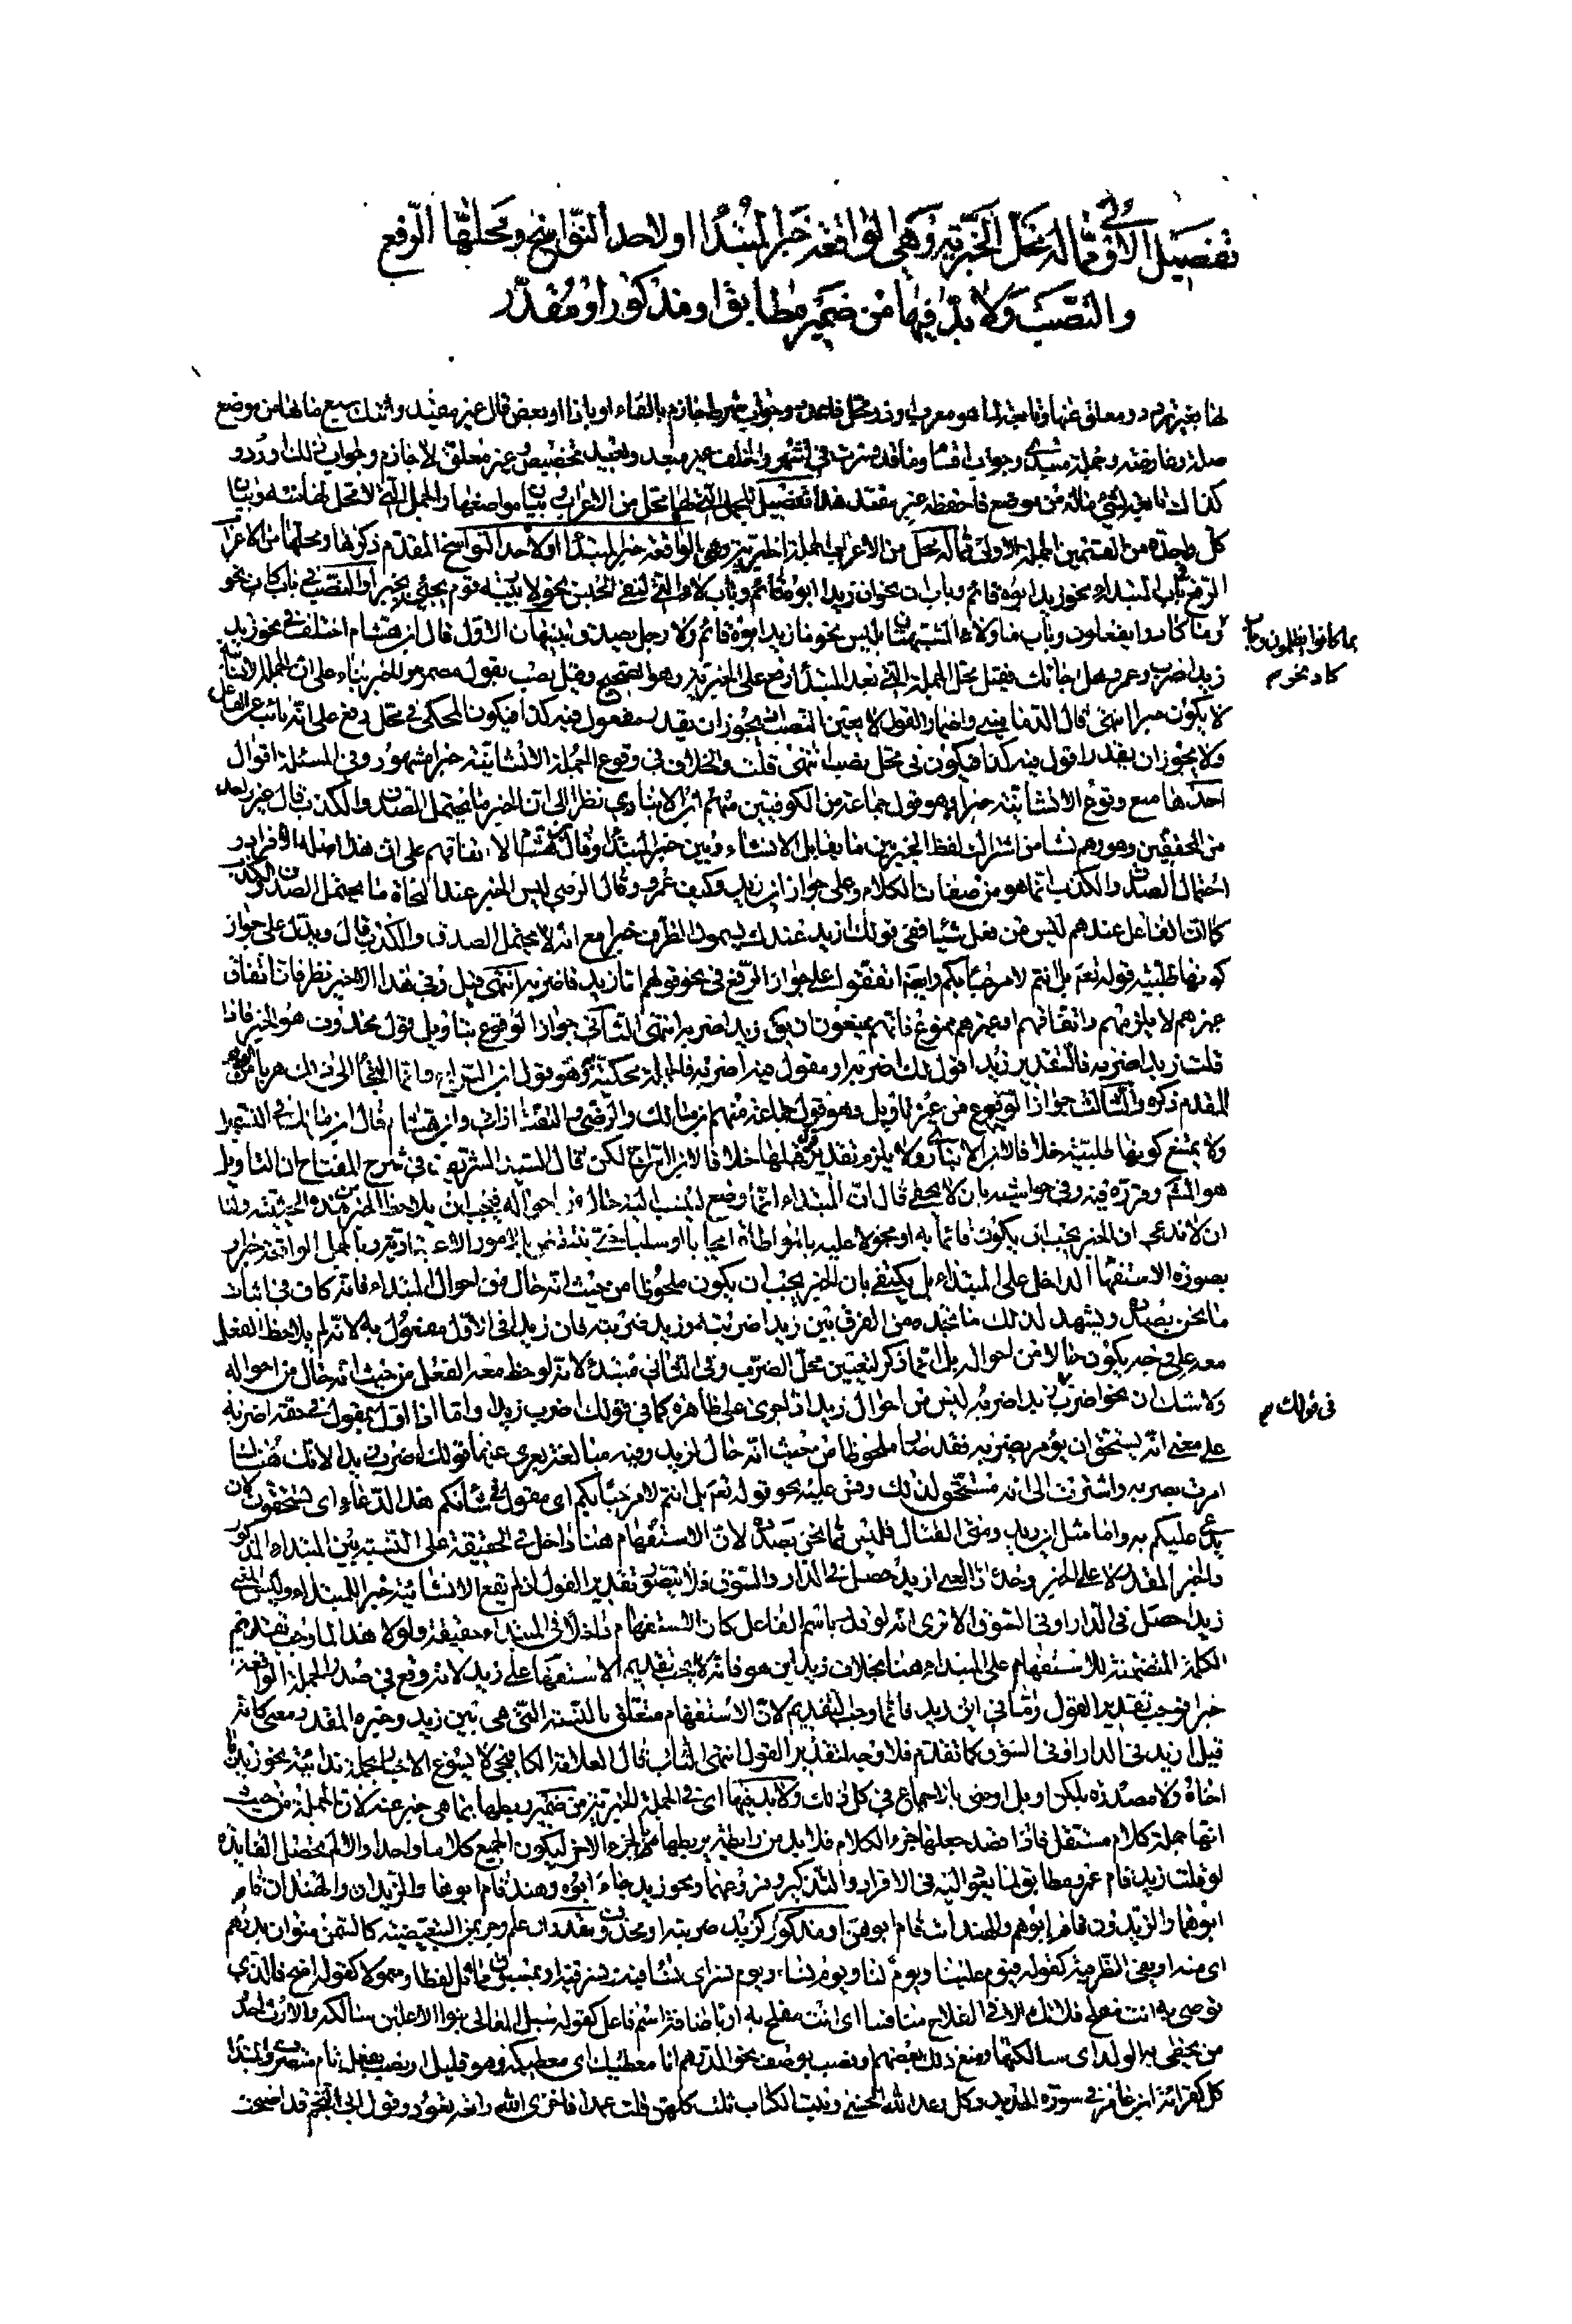 تفصيل الاولى مما له محل الخبرية وهى الواقعة خبرا لمبتدأ او لاحد النواسخ ومحلها الرفع
والنصب ولا بد فيها من ضمير مطابق او مذكور او مقدر
لها بغير تردد ومعلق عنها وتابعة لما هو معرب وذو محل فاعلمه وجواب شرط جازم بالفاء او باذا او بعض قال غير مقيد واتتك سبع ما لها من موضع
صلة وعارضة وجملة مبتدى وجواب اقسام وما قد فسرت فى اشهر والخلف غير مبعد وبعيد تخصيص وغير معلق لا جازم وجواب ذلك اورد و
كذاك تابعة لشئ ماله من موضع فاحفظه غير مفند هذا تفصيل للجمل التى لها محل من الاعراب وبيان مواضعها والجمل التى لا محل لها منه وبيان
كل واحدة من القسمين الجملة الاولى مما له محل من الاعراب الجملة الخبرية وهى الواقعة خبرا لمبتدأ او لاحد النواسخ المقدم ذكرها ومحلها من الاعراب
الرفع فى باب المبتداء نحو زيد ابوه قائم وباب ان نحو ان زيدا ابوه قائم وباب لا التى لنفى الجنس نحو لا ربيئة قوم يجئ بخير او النصب فى باب كان نحو
بما كانوا يظلمون وباب
كاد نحوم
وما كادوا يفعلون وباب ما ولا المشبهتان بليس نحو ما زيد ابوه قائم ولا رجل يصيد وبينهما الاول قال ابن هشام اختلف فى نحو زيد
زيد اضربه وعمرو هل جائك فقيل محل الجملة التى بعد المبتدأ رفع على الخبرية وهو الصحيح وقيل نصب بقول مضمر هو الخبر بناء على ان الجملة الانشائية
لا يكون خبرا انتهى قال الدمامينى واضمار القول لا يعين النصب بجواز ان يقدر مقول فيه كذا فيكون المحكى فى محل رفع على انه نائب عن الفاعل
ولا يجوز ان يقدر اقول فيه كذا فيكون فى محل نصب انتهى قلت والخلاف فى وقوع الجملة الانشائية خبرا مشهور وفى المسئلة اقوال
احدها منع وقوع الانشائية خبرا وهو قول جماعة من الكوفيين منهم ابن الانبارى نظرا الى ان الخبر ما يحتمل الصدق والكذب قال غير واحد
من المحققين وهو وهم نشا من اشتراك لفظ الخبر بين ما يقابل الانشاء وبين خبر المبتدأ وقال ابن هشام لا اتفاقهم على ان هذا اصله الافراد و
احتمال الصدق والكذب انما هو من صفات الكلام وعلى جواز اين زيد وكيف عمرو وقال الرضى ليس الخبر عند النحاة ما يحتمل الصدق والكذب
كما ان الفاعل عندهم ليس من فعل شيئا ففى قولك ازيد عندك يسمون الظرف خبرا مع انه لا يحتمل الصدق والكذب قال ويدل على جواز
كونها طلبية قوله نعم بل انتم لا مرحبا بكم وايضا اتفقوا على جواز الرفع فى نحو قولهم اما زيد فاضربه انتهى قيل وفى هذا الاخير نظر فان اتفاق
غيرهم لا يلزمهم واتفاقهم او غيرهم ممنوع فانهم يمنعون ان يق زيد اضربه انتهى الثانى جواز الوقوع بتاويل قول محذوف هو الخبر فاذا
قلت زيد اضربه فالتقدير زيد اقول لك اضربه او مقول فيه اضربه فالجملة محكية وهو قول ابن السراج وانما الجأ الى ذلك هربا من
المقدم ذكره والثالث جواز الوقوع من غير تاويل وهو قول جماعة منهم ابن مالك والرضى والتفتازانى وابن هشام قال ابن مالك فى التسهيل
ولا يمتنع كونها طلبية خلافا لابن الانبارى ولا يلزم تقدير قول قبلها خلافا لابن السراج لكن قال السيد الشريف فى شرح المفتاح ان التاويل
هو المقم وقرره فيه وفى حواشيه بان لا يخفى قال ان المبتداء انما وضع لينسب اليه حال من احواله فيجب ان يلاحظ الخبر من هذه الحيثية ولنا
ان لا ندعى ان الخبر يجب ان يكون قائما به او محمولا عليه بالمواطاة ايجابا او سلبا
بصورة الاستفهام الداخل على المبتداء بل يكتفى بان الخبر يجب ان يكون ملحوظا من حيث انه حال من احوال المبتداء فانه كاف فى اثبات
ما نحن بصدده ويشهد لذلك ما تجده من الفرق بين زيدا ضربته وزيد ضربته فان زيدا فى الاول مفعول به لانه لم يلاحظ الفعل
معه على وجه يكون حالا من احواله بل انما ذكر لتعيين محل الضرب وفى الثانى مبتدأ لانه لوحظ معه الفعل من حيث انه حال من احواله
فى قولك
ولا شك ان نحو اضرب زيد اضربه ليس من احوال زيد اذا جرى على ظاهره كما فى قولك اضرب زيدا واما اذا اول بمقول فى حقه اضربه
على معنى انه يستحق ان يؤمر بضربه فقد صار ملحوظا من حيث انه حال لزيد وفيه مبالغة يعرى عنها قولك اضرب زيدا لانك هنا
امرت بضربه واشرت الى انه مستحق لذلك وقس عليه نحو قوله نعم بل انتم لا مرحبا بكم اى مقول فى شأنكم هذا الدعاء اى تستحقون ان
يدعى عليكم به واما مثل اين زيد ومتى القتال فليس مما نحن بصدده لان الاستفهام هنا داخل فى الحقيقة على النسبة بين المبتداء المذكور
والخبر المقدر لا على الخبر وحده اذ المعنى ازيد حصل فى الدار والسوق فلا يتصور تقدير القول اذ لم تقع الانشائية خبرا للمبتداء وليس المعنى
زيد احصل فى الدار او فى السوق الا ترى انه لو قدر باسم الفاعل كان الاستفهام داخلا فى المبتداء حقيقة ولولا هذا لما وجب تقديم
الكلمة المتضمنة للاستفهام على المبتداء هنا بخلاف زيد اين هو فانه لا يجب تقديم الاستفهام على زيد لانه وقع فى صدر الجملة الواقعة
خبرا فوجب تقدير القول واما فى اين زيد فانما وجب التقديم لان الاستفهام متعلق بالنسبة التى هى بين زيد وخبره المقدر معنى كانه
قيل ازيد فى الدار او فى السوق كما تقدم فلا وجه لتقدير القول انتهى الثالث قال العلامة الكافيجى لا يسوغ الاخبار بجملة ندائية نحو زيد يا
اخاه ولا مصدرة بلكن او بل او حتى بالاجماع فى كل ذلك ولا بد فيها اى فى الجملة الخبرية من ضمير يربطها بما هى خبر عنه لان الجملة من حيث
انها جملة كلام مستقل فاذا قصد جعلها جزء الكلام فلا بد من رابطة يربطها بالجزء الاخر ليكون الجميع كلاما واحدا والا لم تحصل الفايدة
لو قلت زيد قام عمرو مطابق لما يعود اليه فى الافراد والتذكير وفروعهما نحو زيد جاء ابوه وهند قام ابوها والزيدان والهندان قام
ابوهما والزيدون قام ابوهم والهندات قام ابوهن او مذكور كزيد ضربته او محذوف ويقدر ان علم وجر بمن التبعيضية كالسمن منوان بدرهم
اى منه او بفى الظرفية كقوله فيوم علينا ويوم لنا ويوم نساء ويوم نسر اى نساء فيه ونسر فيه او بمسبوق مماثل لفظا ومعمولا كقوله اصخ فالذى
توصى به انت مفلح فلا تك الا فى الفلاح منافسا اى انت مفلح به او باضافة اسم فاعل كقوله سبل المعالى بنوا الاعلين سالكة والارث اجدر
من يحظى به الولد اى سالكتها ومنع ذلك بعضهم او نصب بوصف نحو الدرهم انا معطيك اى معطيكه وهو قليل او نصب بفعل تام متصرف والمبتدأ
كل كقرائة ابن عامر فى سورة الحديد وكل وعد الله الحسنى وبيت الكتاب ثلث كلهن قتلت عمدا فاخزى الله رابعة تعود وقول ابى النجم قد اصبحت